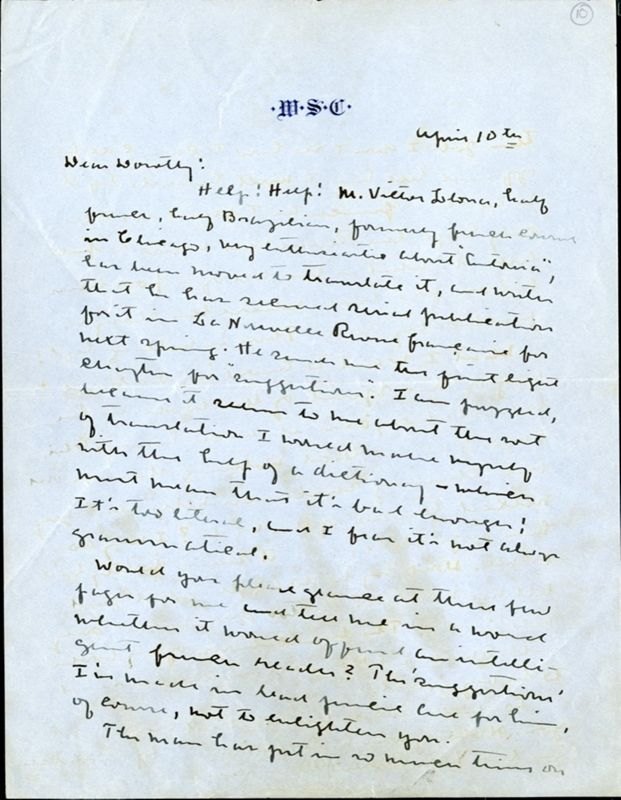 10
·W·S·C·
April 10th
Dear Dorothy:
Help! Help! M. Victor Llona, half
french, half Brazilian, formerly french consul
in Chicago, very enthusiastic about "Antonia",
has been moved to translate it, and writes
that he has secured serial publication
for it in La Nouvelle Revue française for
next spring. He sends me the first eight
chapters for "suggestions". I am puzzled,
because it seems to me about the sort
of translation I would make myself
with the help of a dictionary – which
must mean that it's bad enough!
It's too literal, and I fear it's not always
grammatical.
Would you please glance at these few
pages for me and tell me in a word
whether it would offend an intelli-
gent french reader? The 'suggestions'
I've made in lead pencil are for him,
of course, not to enlighten you.
This man has put in so much time on